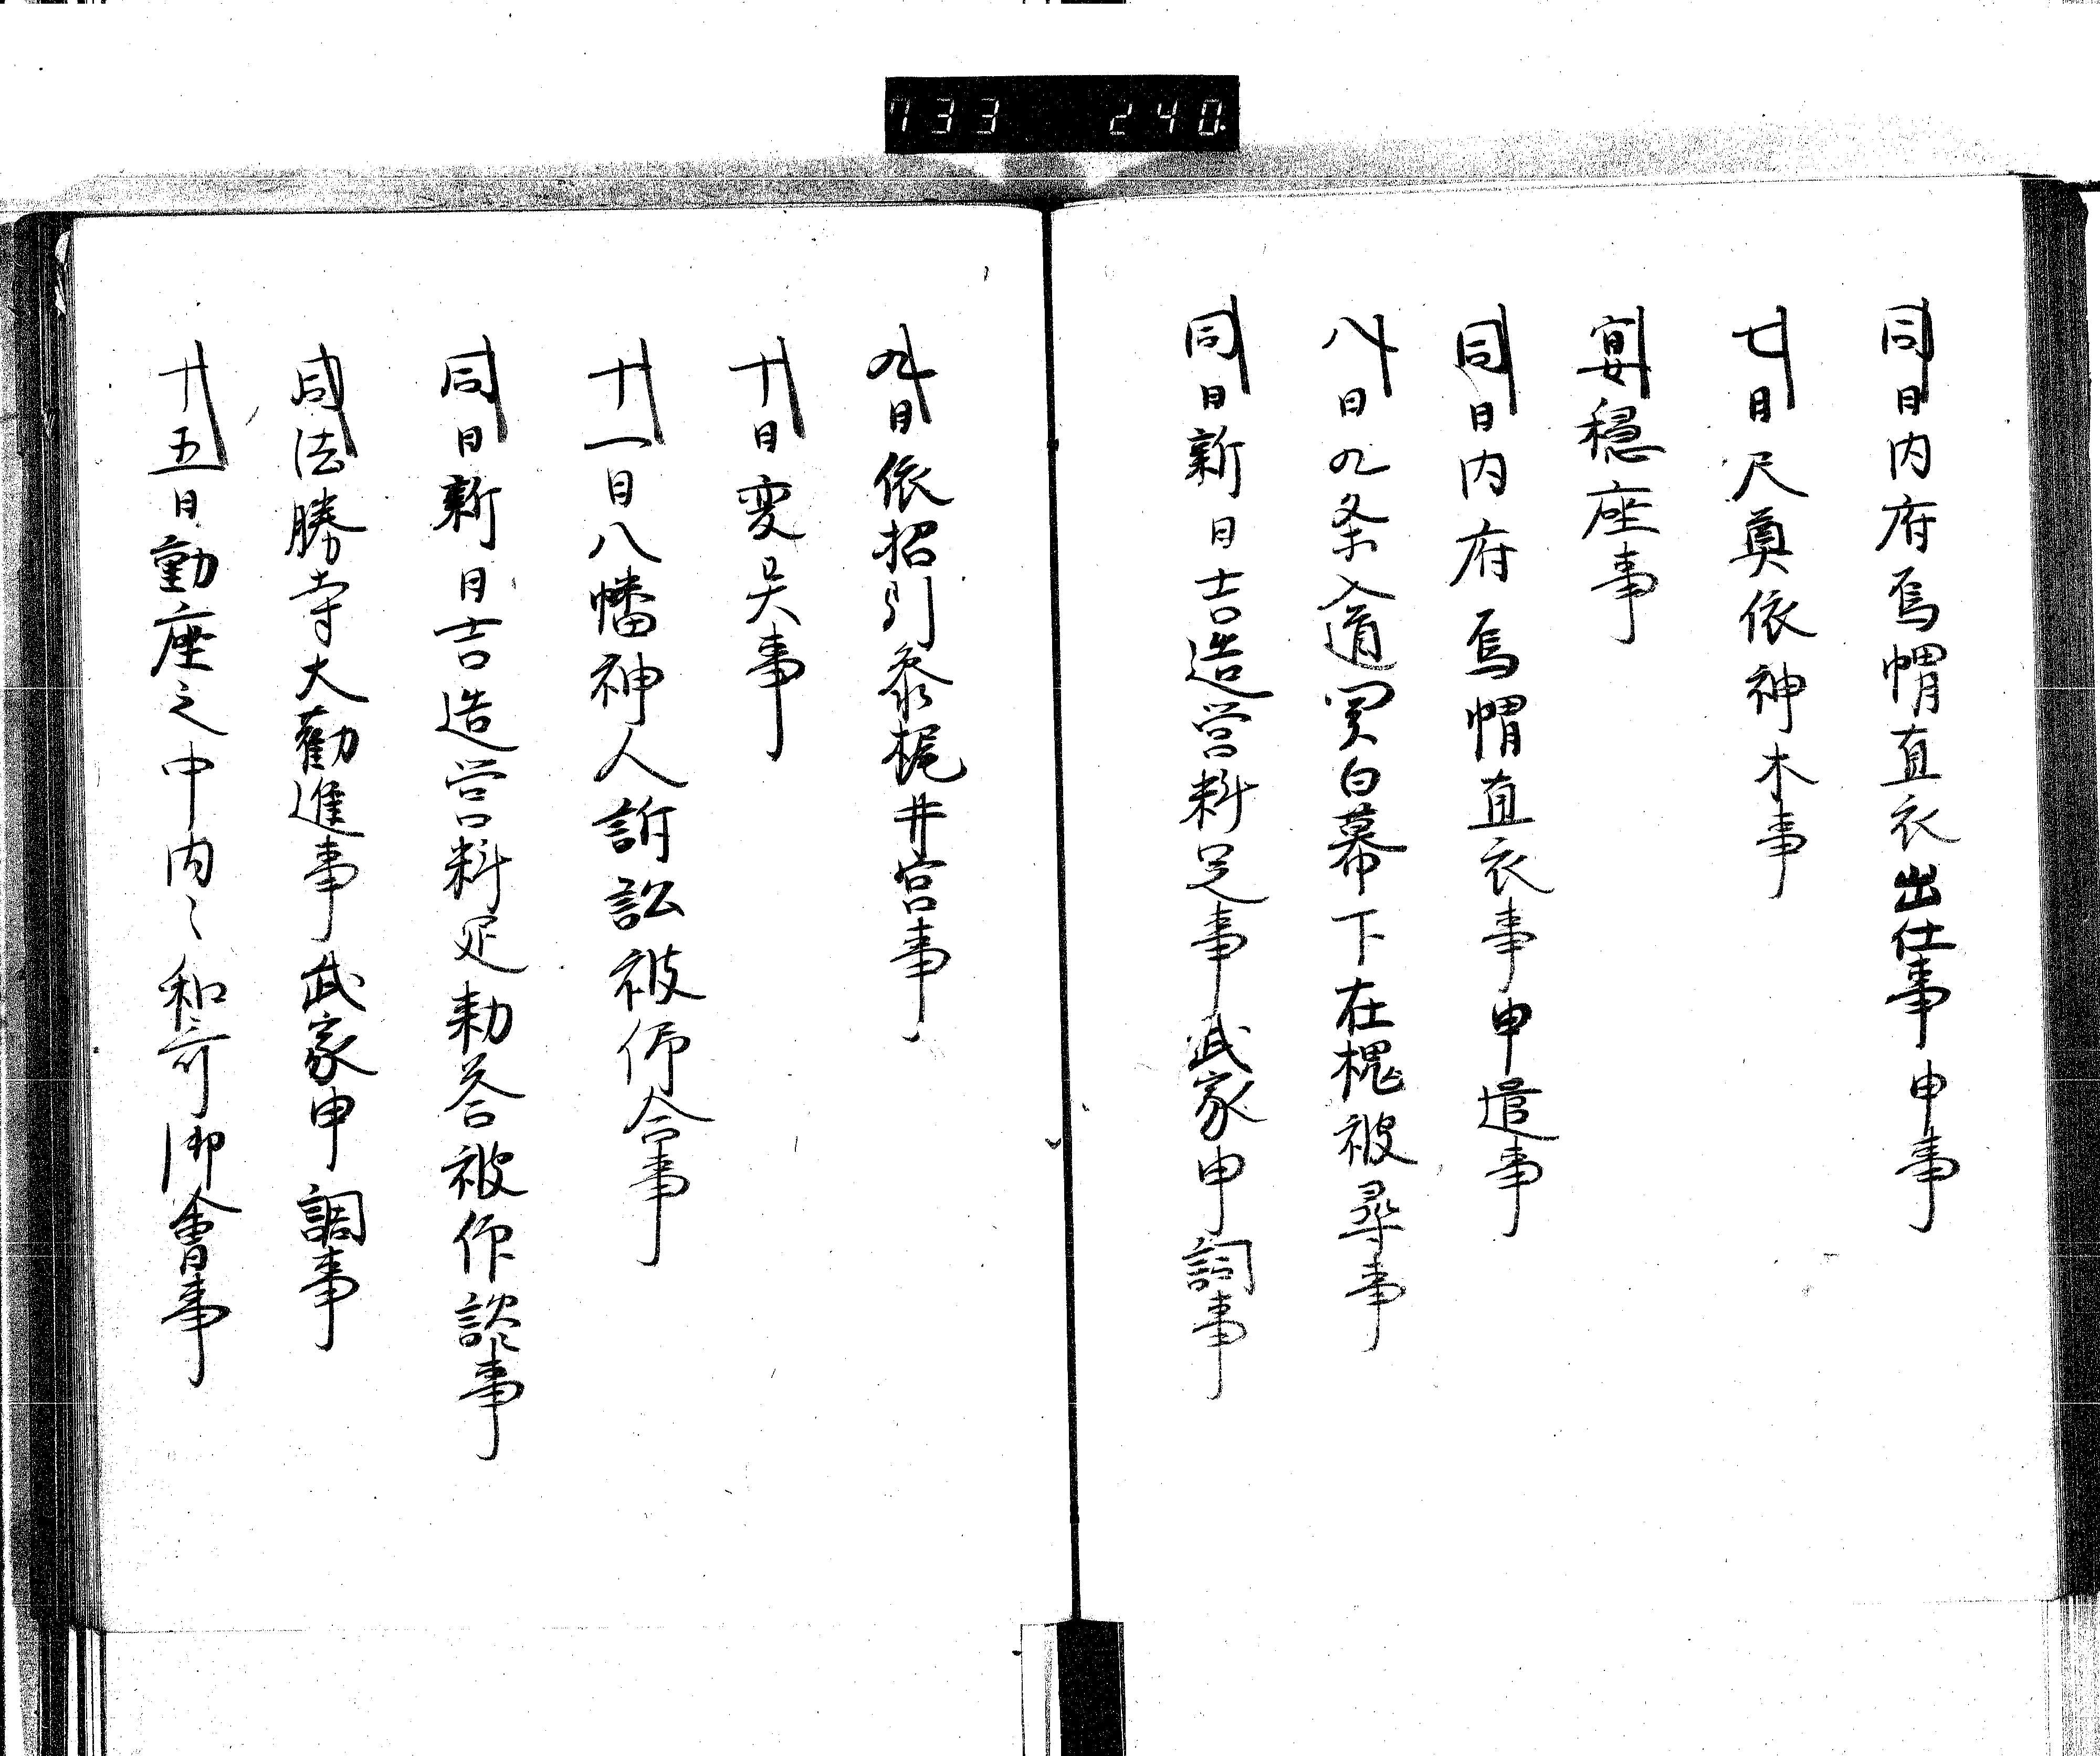 733 240.
同日内府烏帽直衣出仕事申事
七日尺奠依神木事
宴穏座事
同日内府烏帽直衣事申遣事
八日九条入道関白幕下在槐被尋事
同日新日吉造営料足事武家申詞事
九日依招引参梶井宮事
十日変異事
十一日八幡神人訴訟被仰合事
同日新日吉造営料足勅答被作談事
同法勝寺大勧進事武家申調事
十五日動座之中内々和哥御會事